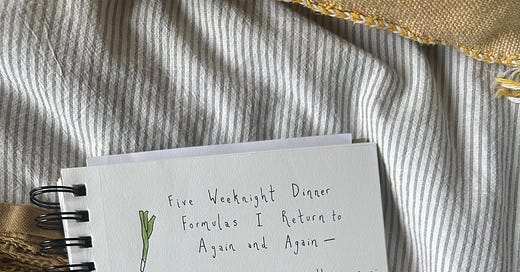 Five Weeknight Dinner
Formulas I Return to
Again and Again —